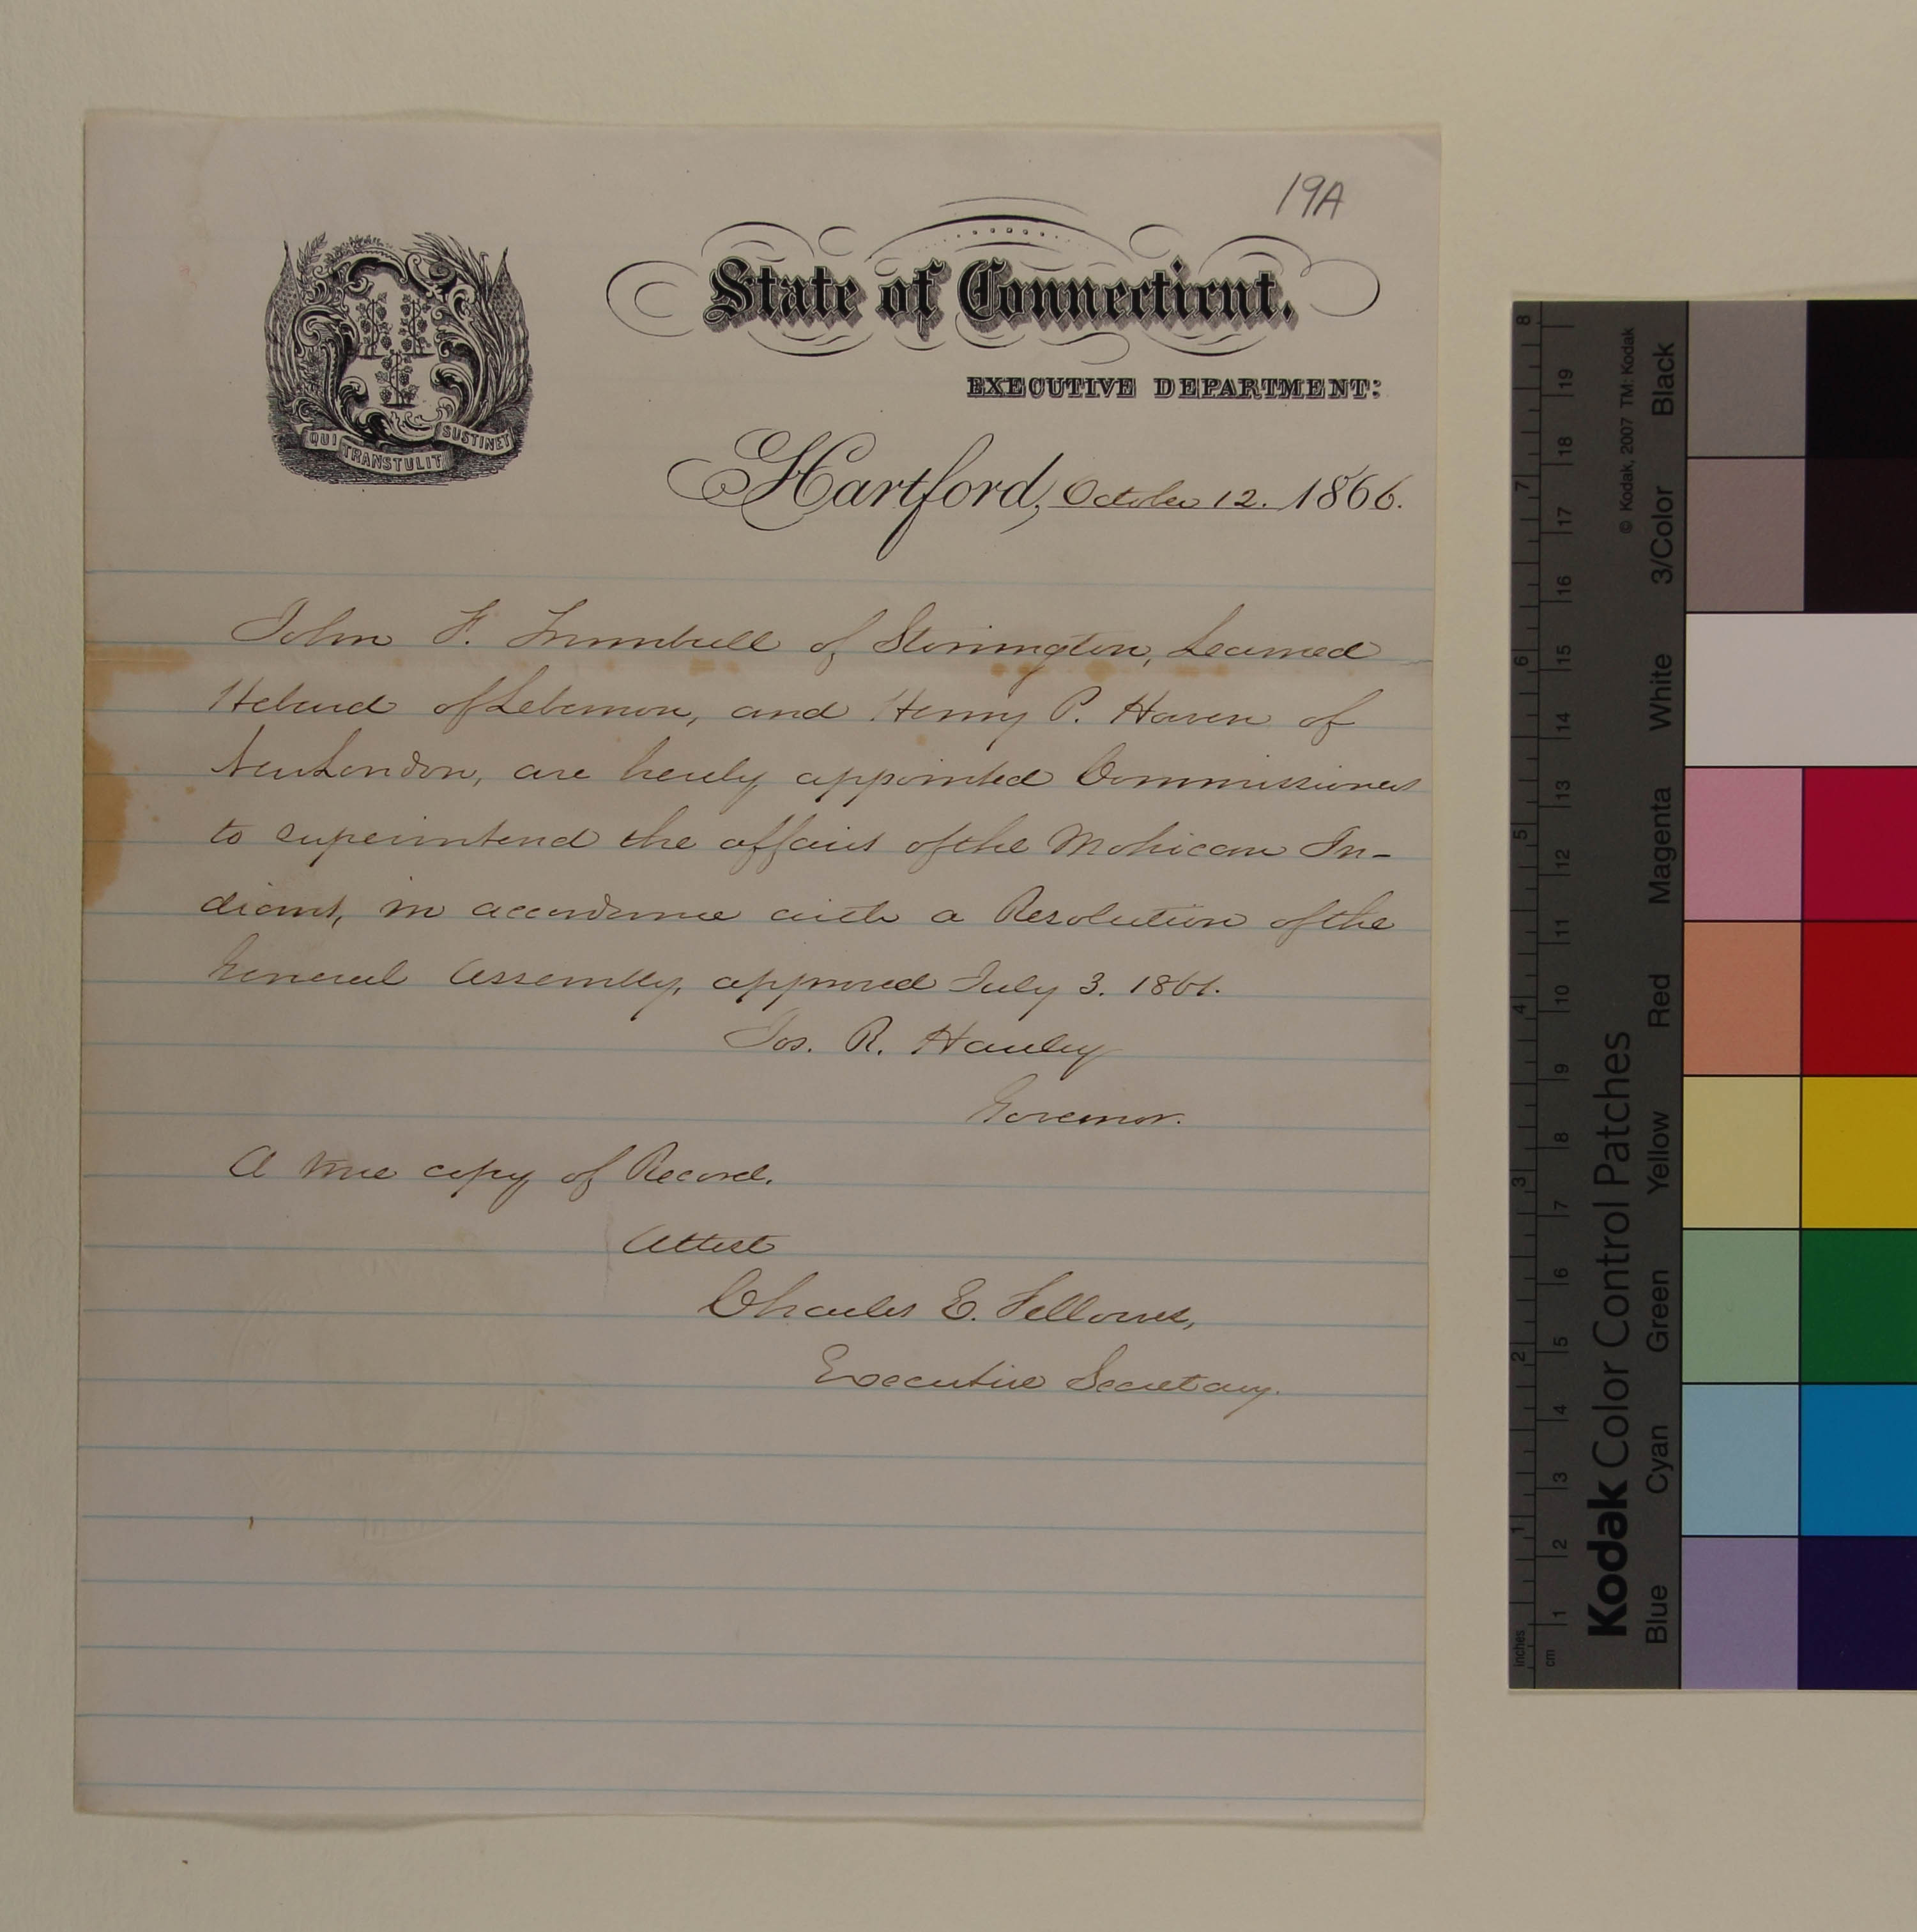 19A
State of Connecticut.
EXECUTIVE DEPARTMENT:
QUI TRANSTULIT SUSTINET
Hartford, October 12. 1866.
John F. Trumbull of Stonington, Learned
Hebard of Lebanon, and Henry P. Haven of
New London, are hereby appointed Commissioners
to superintend the affairs of the Mohican In-
dians, in accordance with a Resolution of the
General Assembly, approved July 3. 1861.
Jos. R. Hawley
Governor.
A true copy of Record.
Attest
Charles E. Fellowes,
Executive Secretary.
inches 1 2 3 4 5 6 7 8
cm 1 2 3 4 5 6 7 8 9 10 11 12 13 14 15 16 17 18 19
Kodak Color Control Patches
© Kodak, 2007 TM: Kodak
Blue Cyan Green Yellow Red Magenta White 3/Color Black